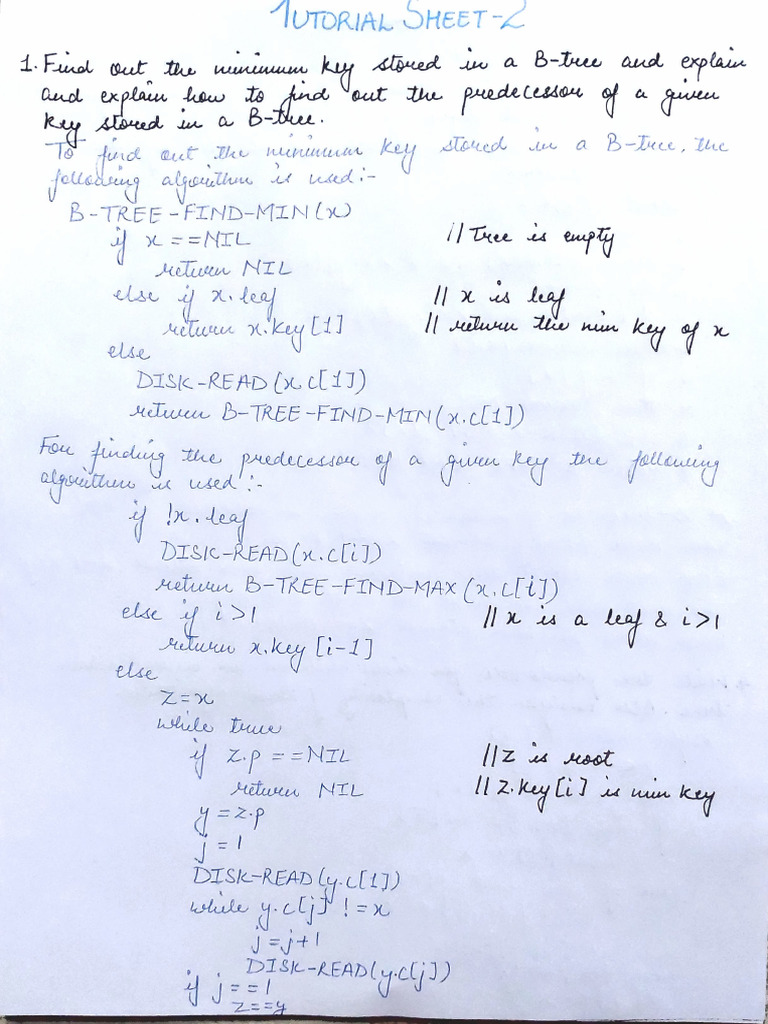 TUTORIAL SHEET-2
1. Find out the minimum key stored in a B-tree and explain
and explain how to find out the predecessor of a given
key stored in a B-tree.
To find out the minimum key stored in a B-Tree, the
following algorithm is used:-
B-TREE-FIND-MIN(x)
if x ==NIL //Tree is empty
return NIL
else if x.leaf // x is leaf
return x.key[1] // return the min key of x
else
DISK-READ(x.c[1])
return B-TREE-FIND-MIN(x.c[1])
For finding the predecessor of a given key the following
algorithm is used:-
if !x.leaf
DISK-READ(x.c[i])
return B-TREE-FIND-MAX(x.c[i])
else if i>1 //x is a leaf & i>1
return x.key[i-1]
else
z=x
while true
if z.p ==NIL //z is root
return NIL //z.key[i] is min key
y=z.p
j=1
DISK-READ(y.c[1])
while y.c[j] !=x
j=j+1
DISK-READ(y.c[j])
if j==1
z==y